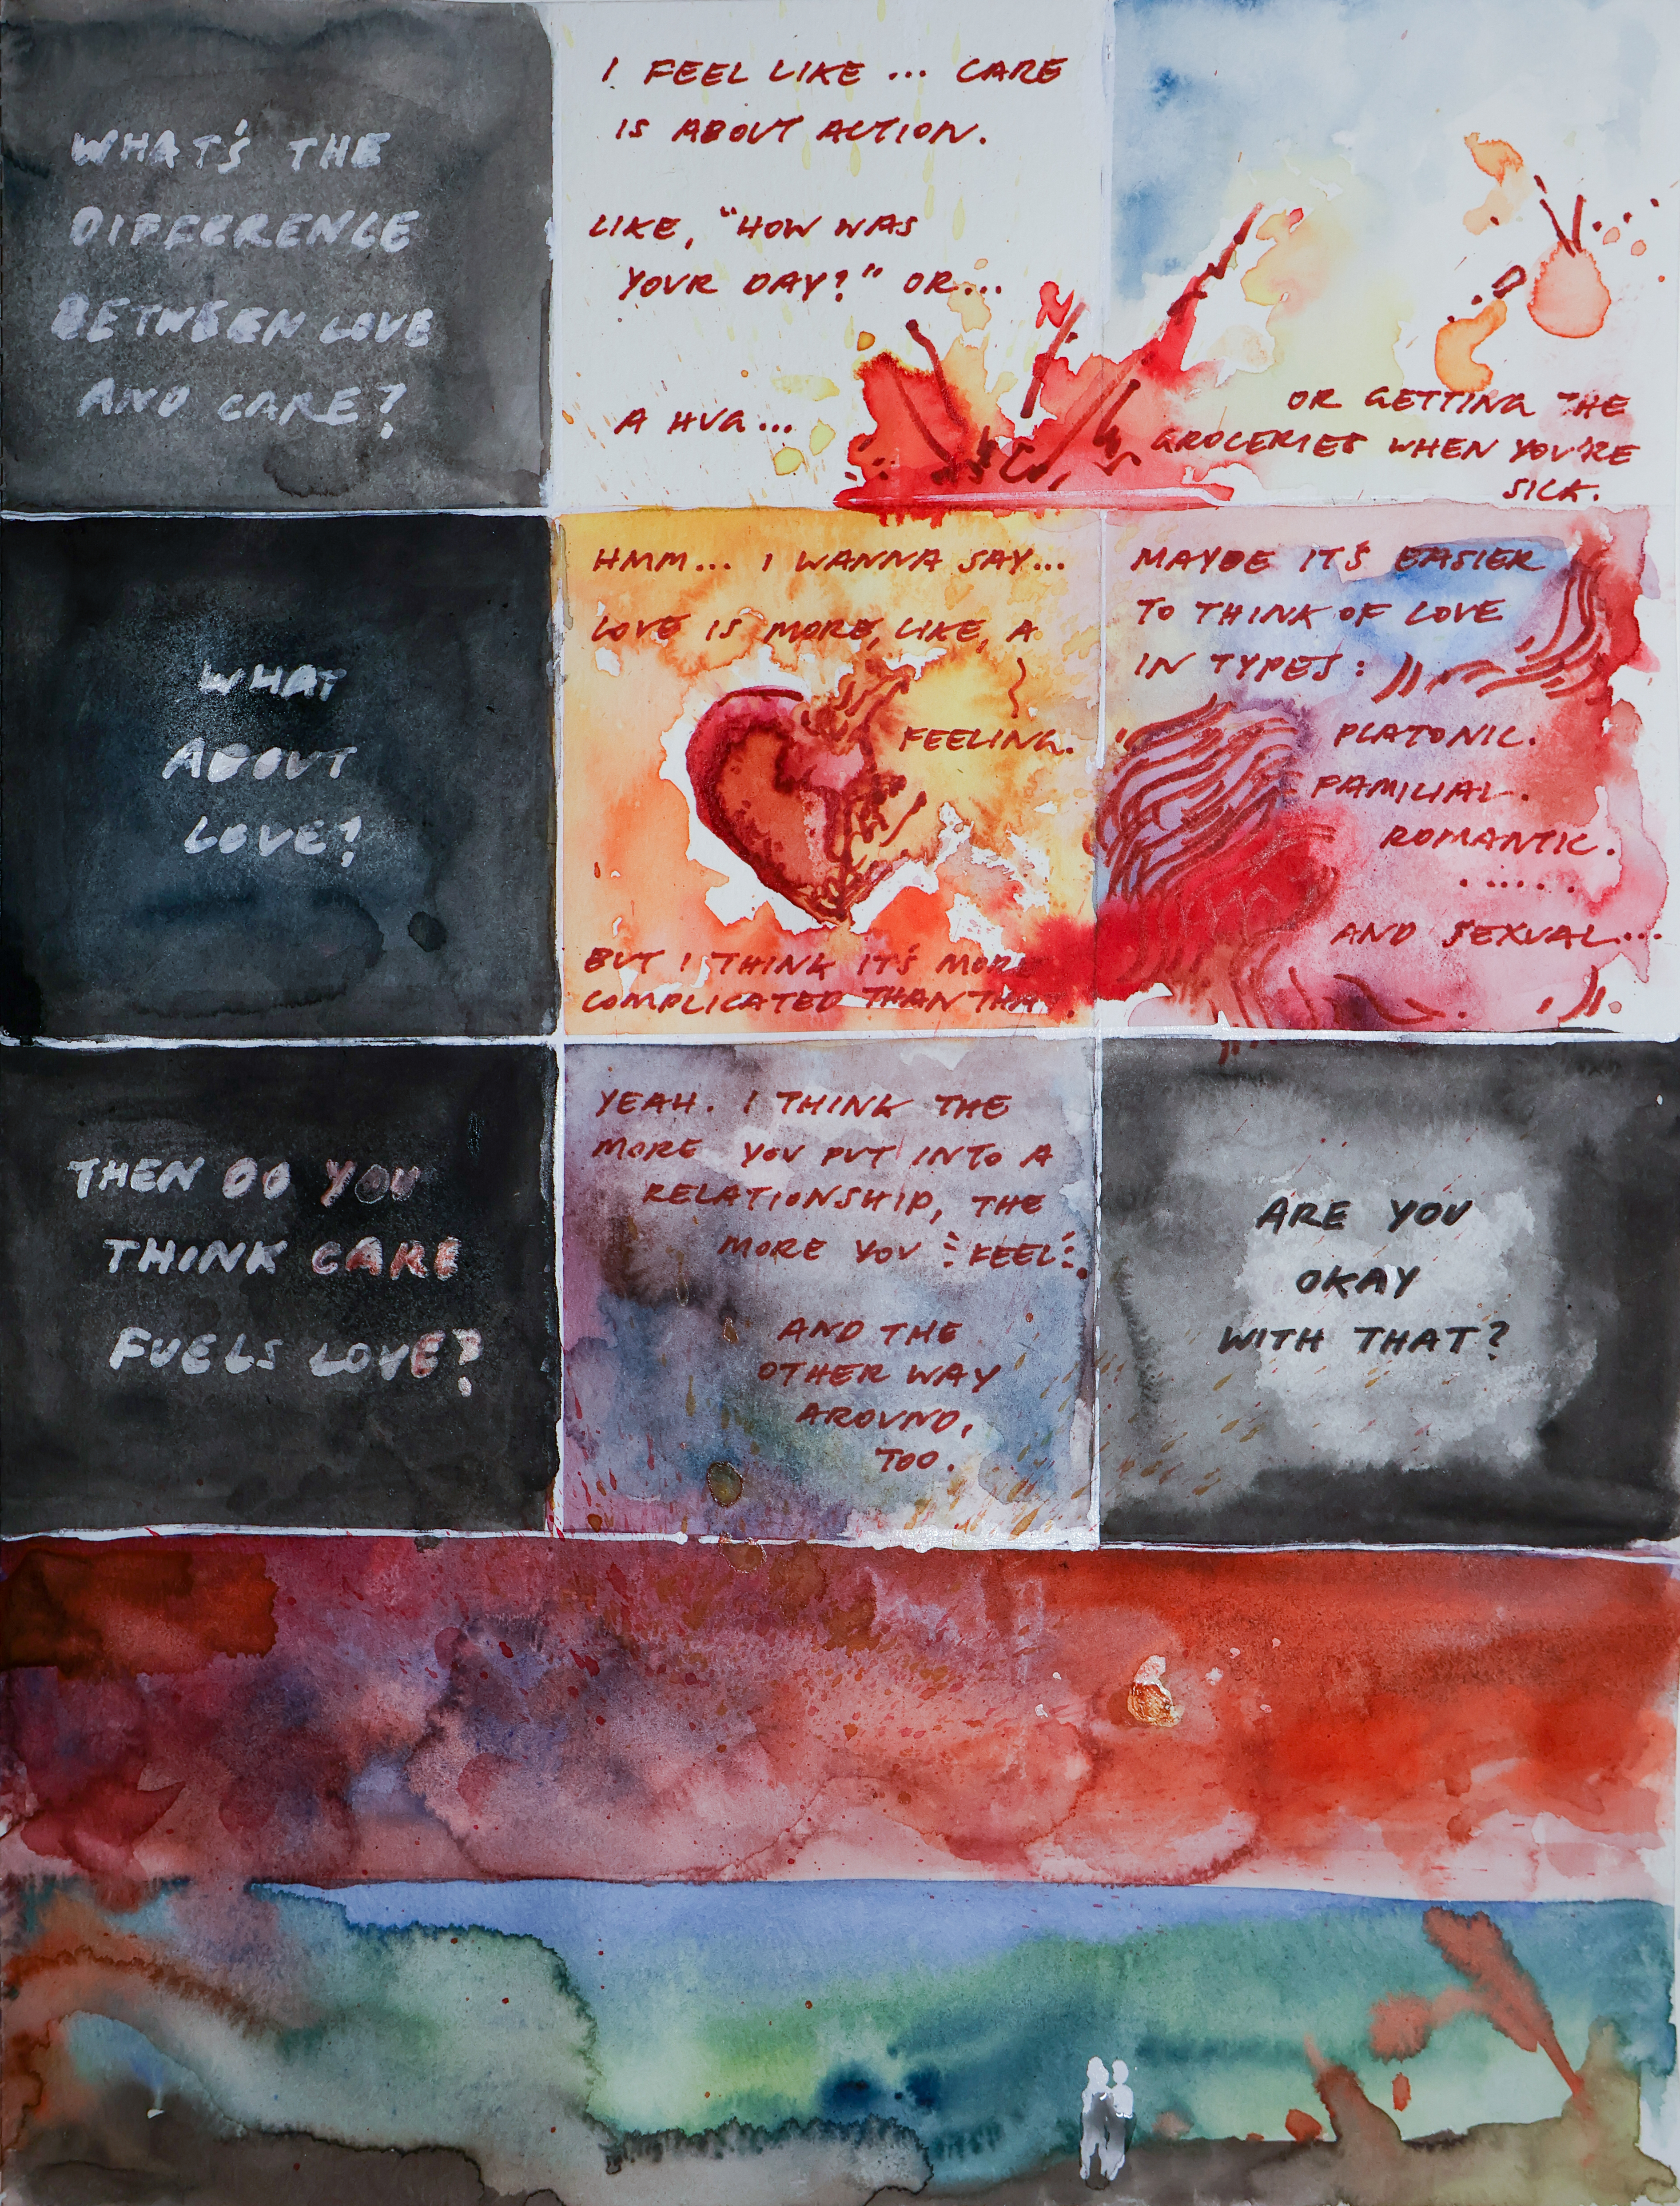 WHAT'S THE
DIFFERENCE
BETWEEN LOVE
AND CARE?
I FEEL LIKE ... CARE
IS ABOUT ACTION.
LIKE, "HOW WAS
YOUR DAY?" OR...
A HUG...
OR GETTING THE
GROCERIES WHEN YOU'RE
SICK.
WHAT
ABOUT
LOVE?
HMM... I WANNA SAY...
LOVE IS MORE, LIKE, A
FEELING.
BUT I THINK IT'S MORE
COMPLICATED THAN THAT.
MAYBE IT'S EASIER
TO THINK OF LOVE
IN TYPES:
PLATONIC.
FAMILIAL.
ROMANTIC.
......
AND SEXUAL...
THEN DO YOU
THINK CARE
FUELS LOVE?
YEAH. I THINK THE
MORE YOU PUT INTO A
RELATIONSHIP, THE
MORE YOU FEEL.
AND THE
OTHER WAY
AROUND,
TOO.
ARE YOU
OKAY
WITH THAT?